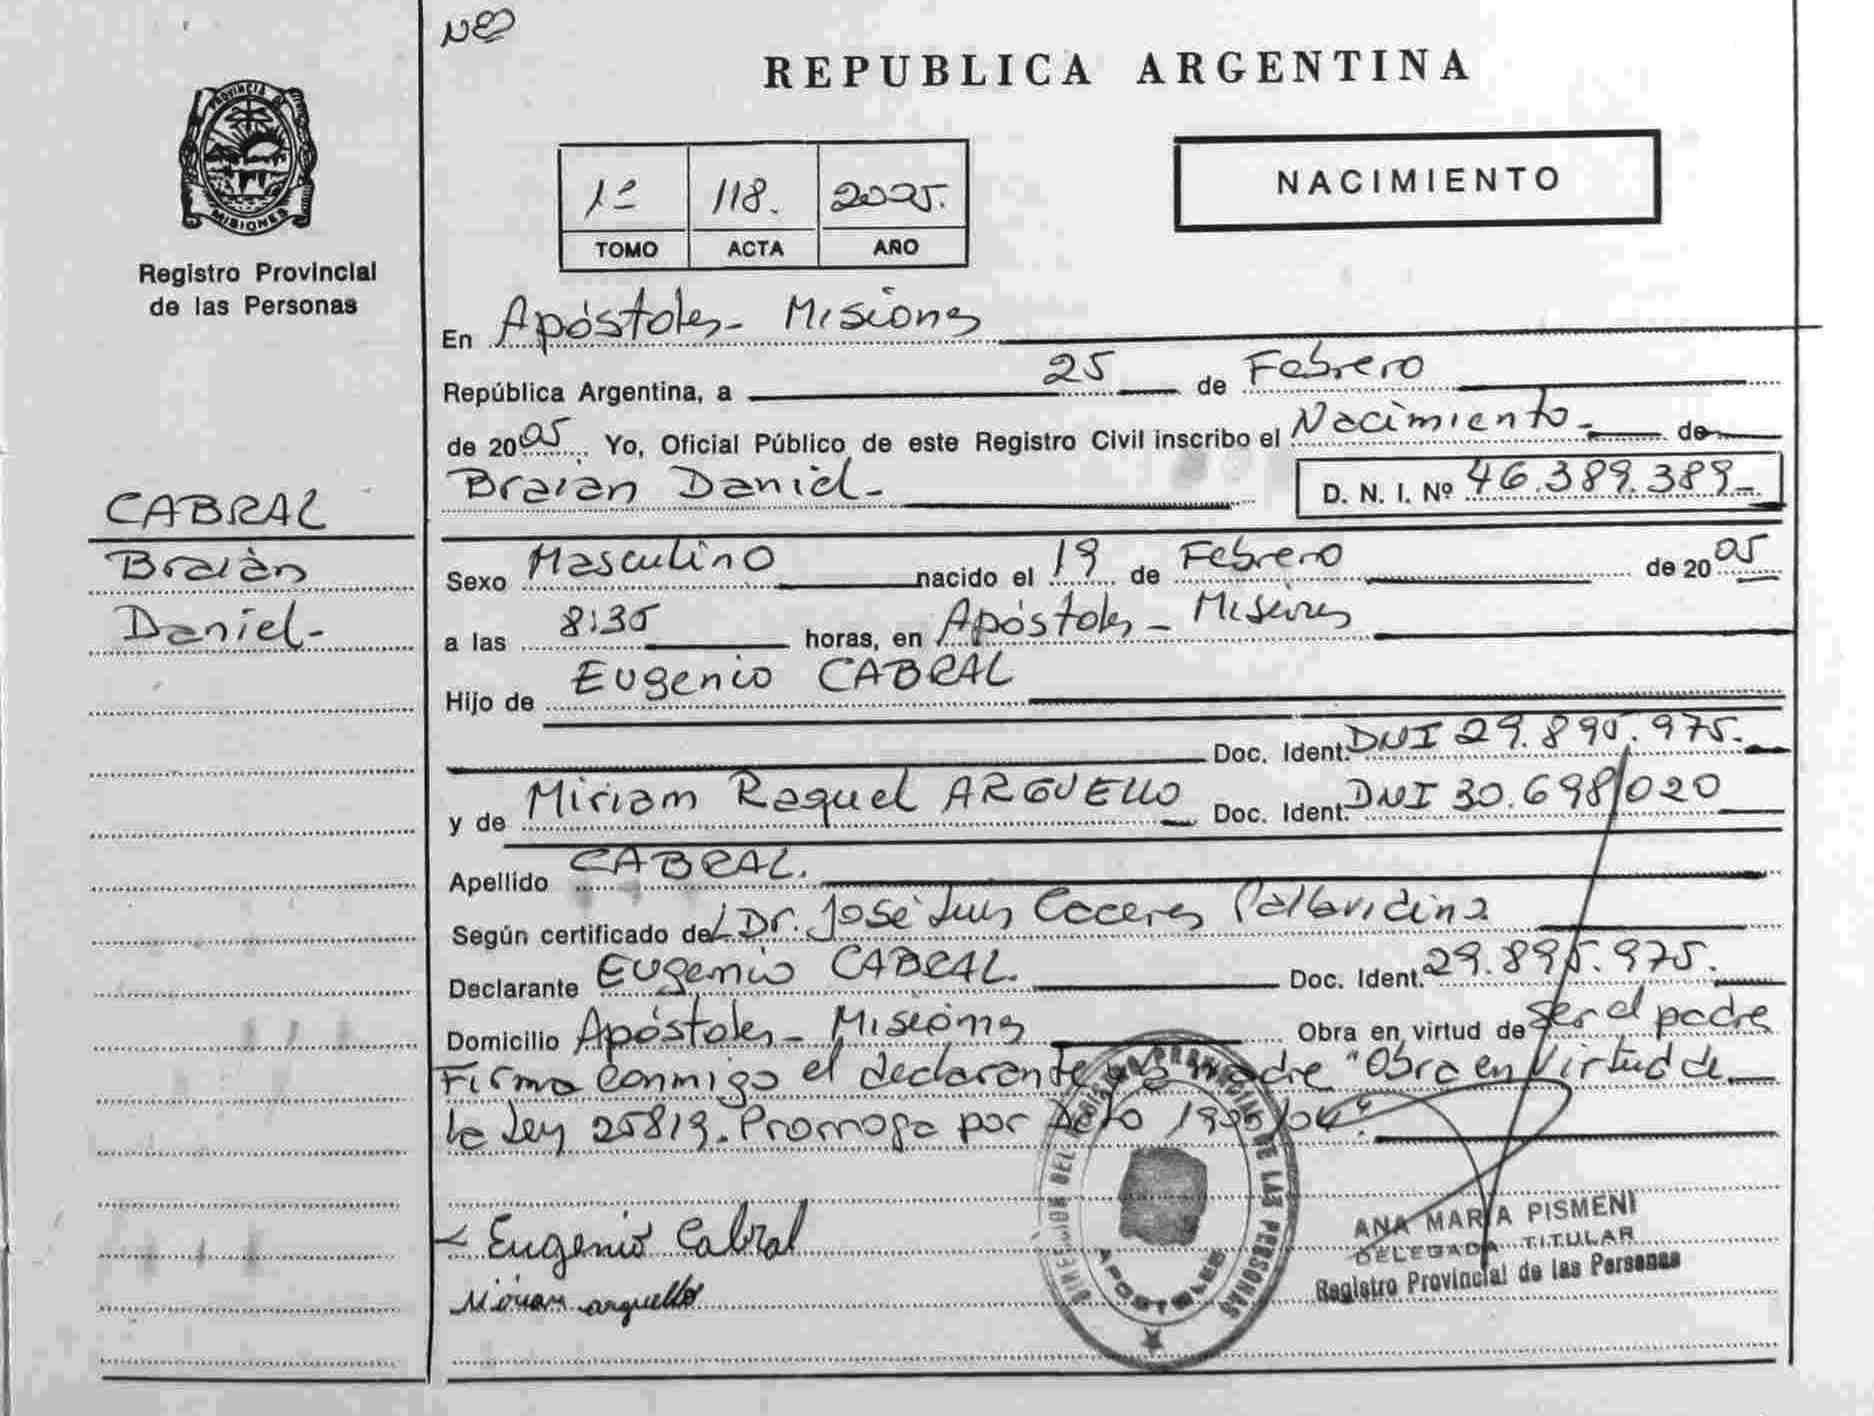 REPUBLICA ARGENTINA
PROVINCIA DE
MISIONES
Registro Provincial
de las Personas
NACIMIENTO
1º 118. 2005.
TOMO ACTA AÑO
En Apóstoles - Misiones
República Argentina, a 25 de Febrero
de 2005 Yo, Oficial Público de este Registro Civil inscribo el Nacimiento - de
Braian Daniel - D. N. I. Nº 46.389.389 -
CABRAL
Braian
Daniel -
Sexo Masculino nacido el 19 de Febrero de 2005
a las 8:35 horas, en Apóstoles - Misiones
Hijo de Eugenio CABRAL
Doc. Ident. DNI 29.895.975.
y de Miriam Raquel ARGUELLO Doc. Ident. DNI 30.698.020
Apellido CABRAL.
Según certificado del Dr. José Luis Caceres Pallavidina
Declarante Eugenio CABRAL. Doc. Ident. 29.895.975.
Domicilio Apóstoles - Misiones Obra en virtud de ser el padre
Firma conmigo el declarante y la madre "Obra en Virtud de
la Ley 25819. Prorroga por Dcto 1905/04".
Eugenio Cabral
Miriam arguello
APOSTOLES
DE LAS PERSONAS
ANA MARIA PISMENI
DELEGADA TITULAR
Registro Provincial de las Personas